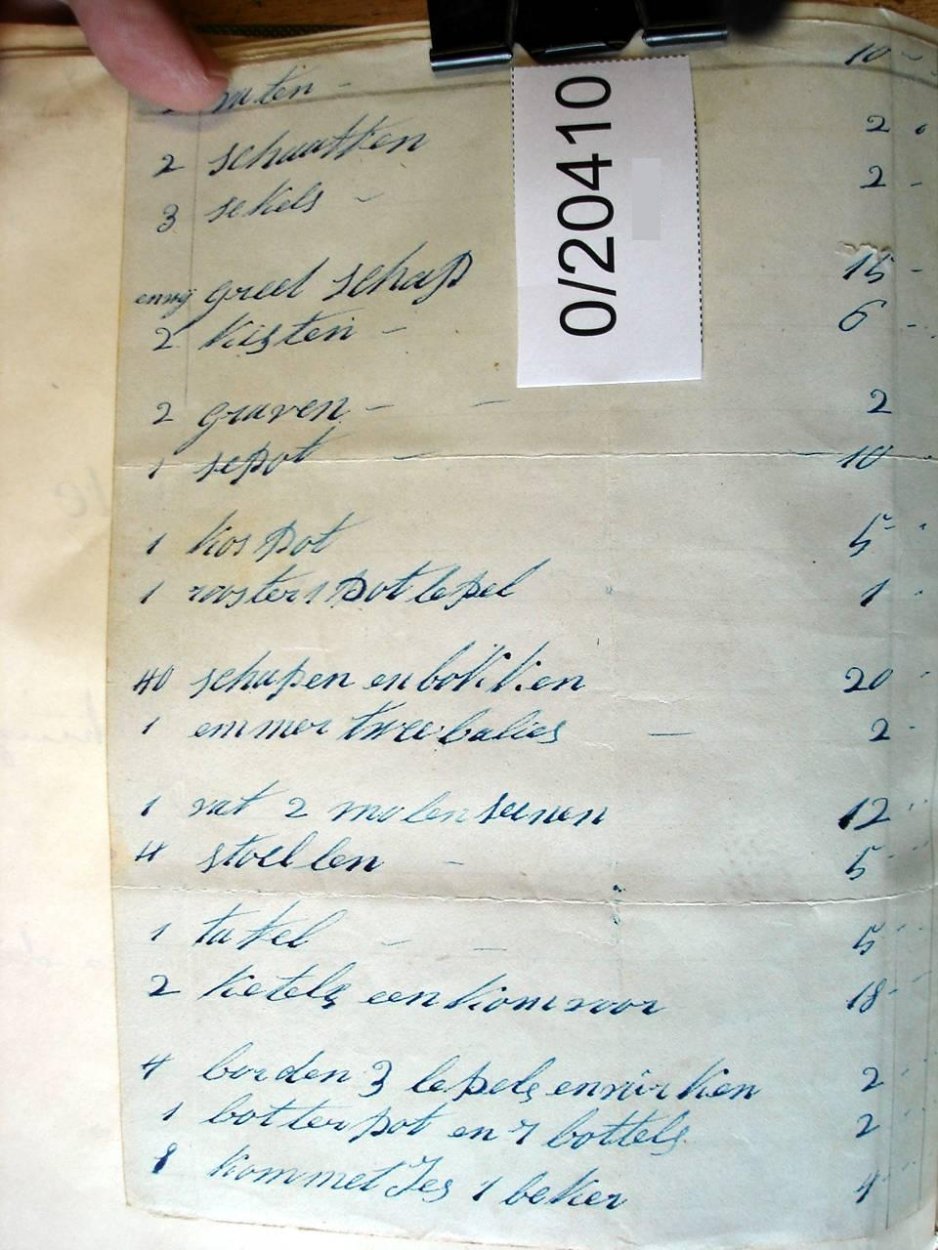 10 -
2 schaatten 2
3 sekels - 2 -
0/20410
enuig greet schap 15 -
2 kisten - 6 -
2 graven - - 2
1 sepot - 10
1 kos pot 5
1 rooster 1 potlepel 1
40 schapen en bokken 20
1 emmer twee balies - 2 -
1 vat 2 molen seenen 12
4 stoellen - 5
1 tafel - - 5
2 ketels een komvoor 18
4 borden 3 lepels en virken 2
1 botter pot en 7 bottels 2
8 kommetjes 1 beker 4